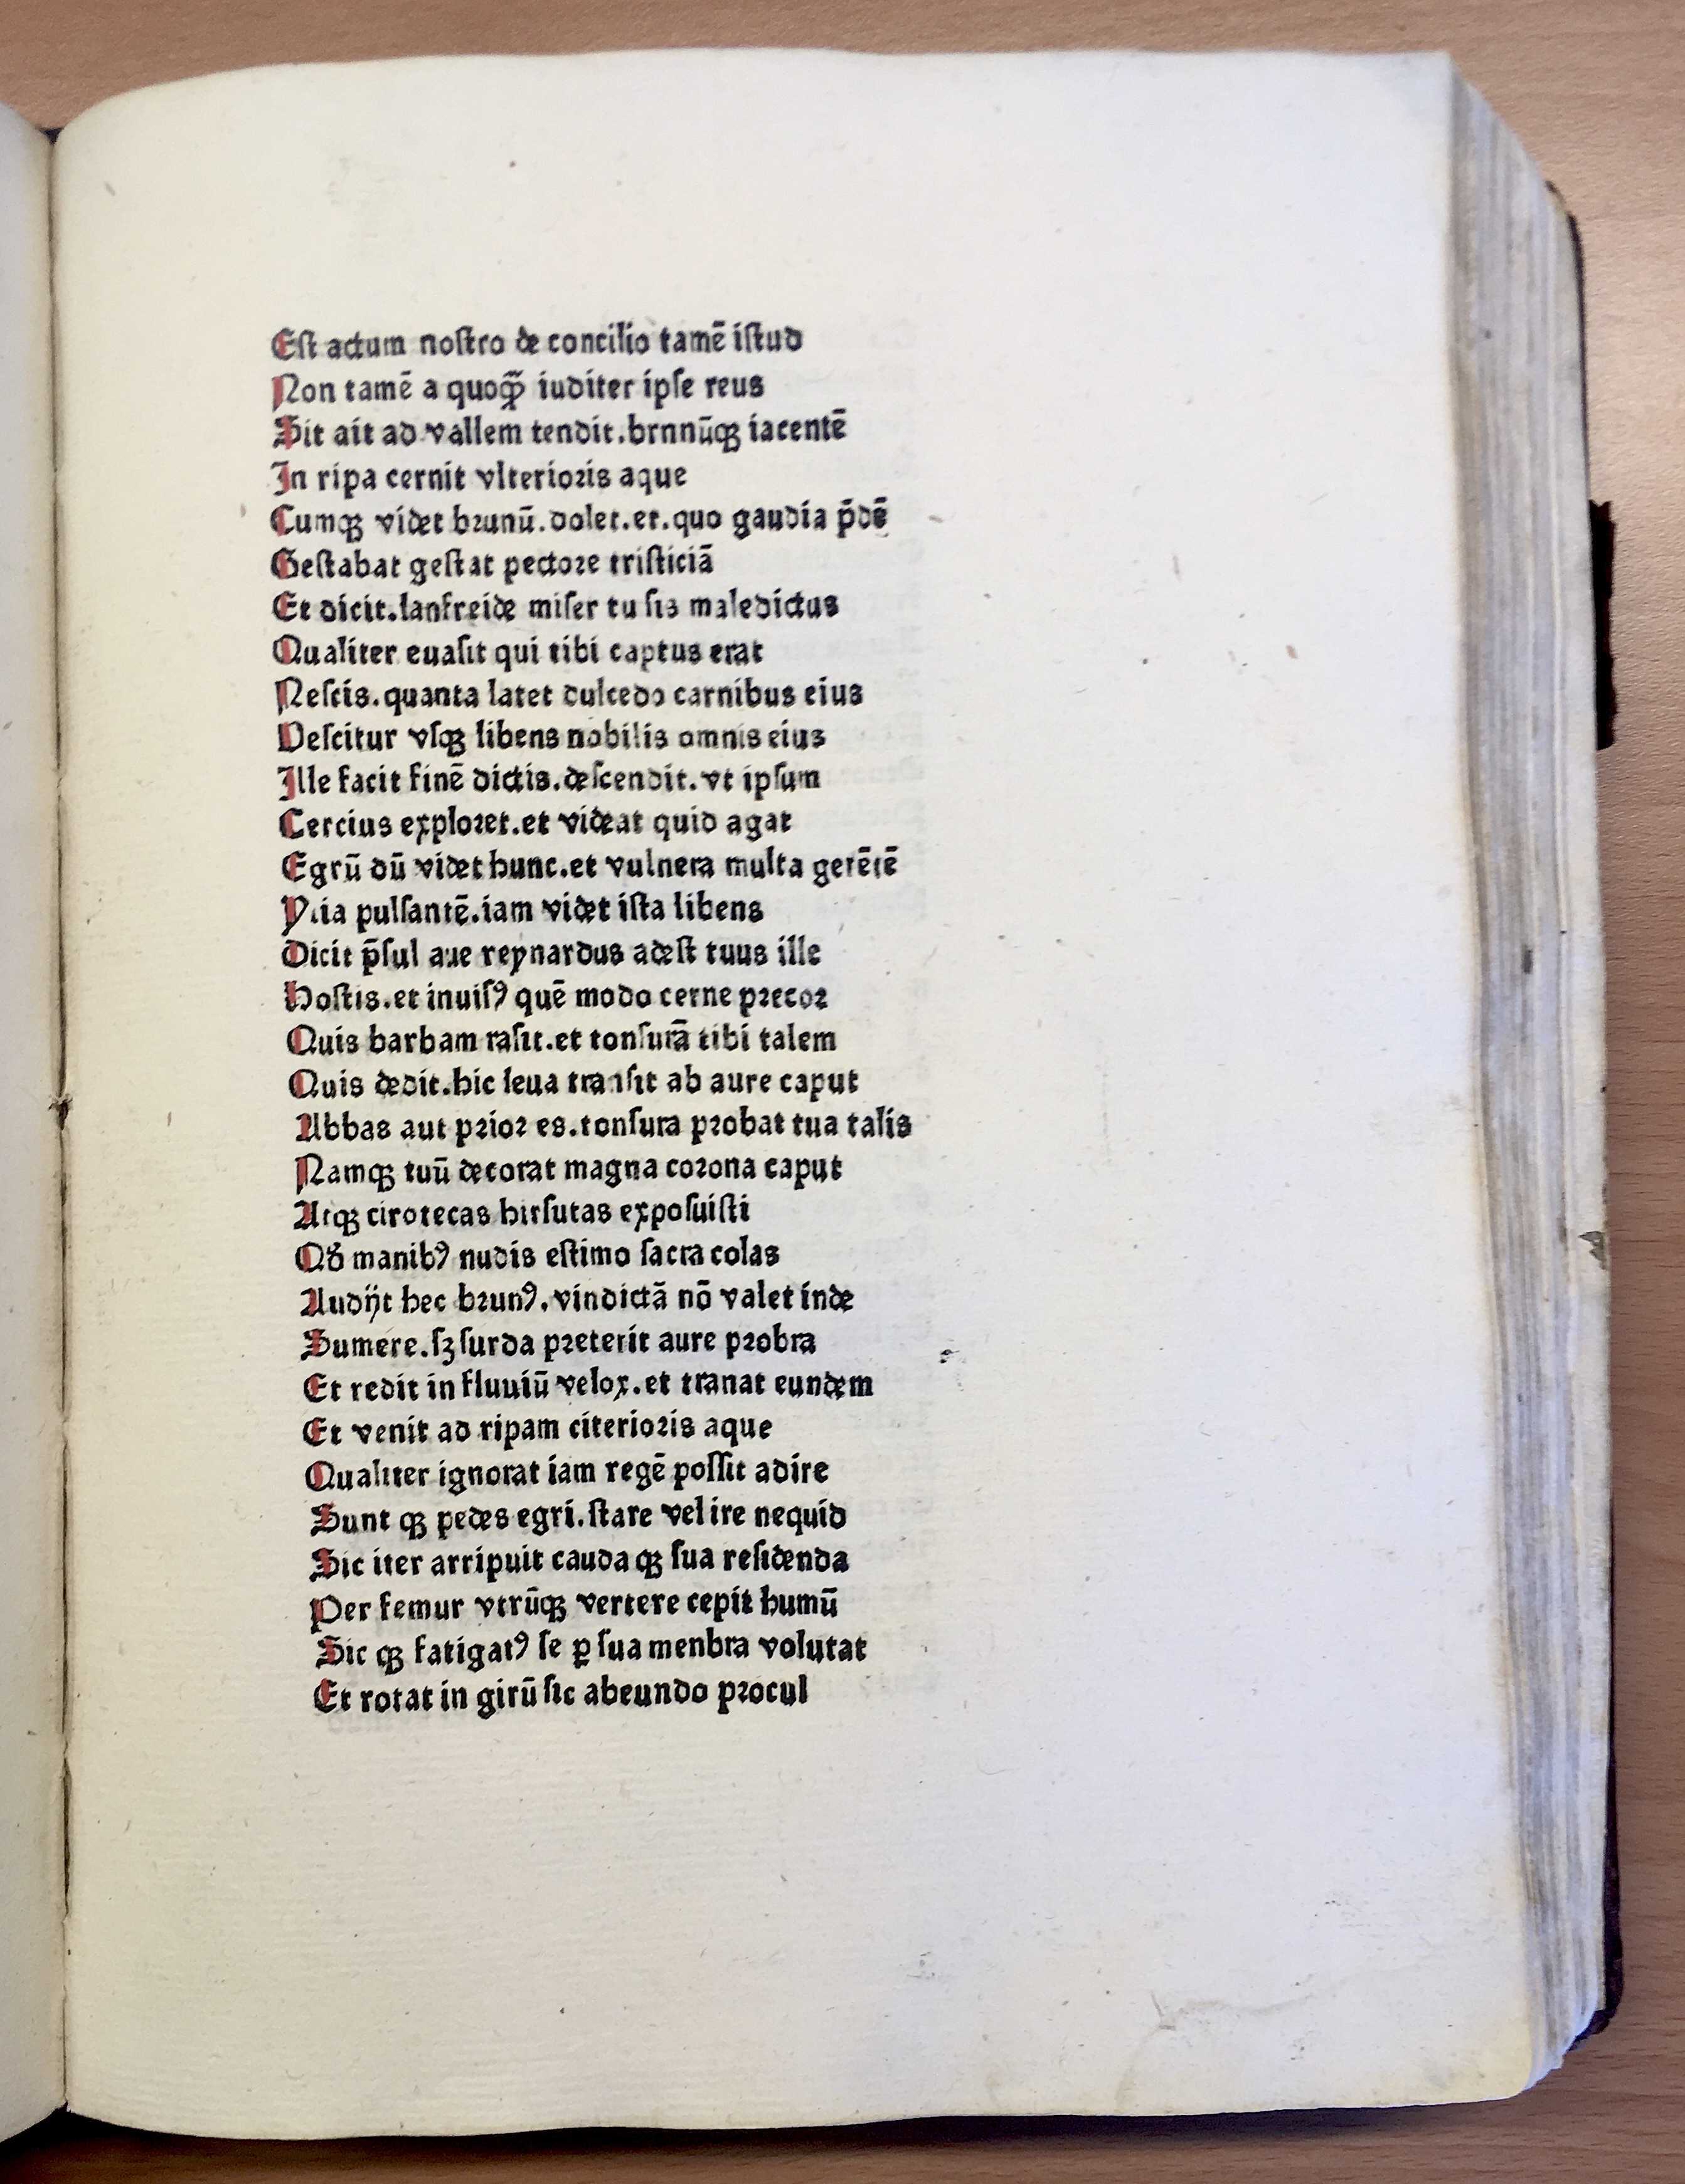 Eſt actum noſtro de concilio tamē iſtud
Non tamē a quoqꝫ̄ iuditer ipſe reus
Sit ait ad vallem tendit.brnnūqꝫ iacentē
In ripa cernit vlterioꝛis aque
Cumqꝫ videt bꝛunū.dolet.et.quo gaudia p̄dē
Geſtabat geſtat pectoꝛe triſticiā
Et dicit.lanfreide miſer tu ſis maledictus
Qualiter euaſit qui tibi captus erat
Neſcis.quanta latet dulcedo carnibus eius
Veſcitur vſqꝫ libens nobilis omnis eius
Ille facit finē dictis.deſcendit.vt ipſum
Cercius exploꝛet.et videat quid agat
Egrū dū videt hunc.et vulnera multa gerētē
Ylia pulſantē.iam videt iſta libens
Dicit p̄ſul aue reynardus adeſt tuus ille
Hoſtis.et inuiſꝰ quē modo cerne pꝛecoꝛ
Quis barbam raſit.et tonſurā tibi talem
Quis dedit.hic leua tranſit ab aure caput
Abbas aut pꝛioꝛ es.tonſura pꝛobat tua talis
Namqꝫ tuū decorat magna coꝛona caput
Atqꝫ cirotecas hirſutas expoſuiſti
Qd̕ manibꝰ nudis eſtimo ſacra colas
Audijt hec bꝛunꝰ.vindictā nō valet inde
Sumere.ſꝫ ſurda pꝛeterit aure pꝛobra
Et redit in fluuiū velox.et tranat eundem
Et venit ad ripam citerioꝛis aque
Qualiter ignorat iam regē poſſit adire
Sunt qꝫ pedes egri.ſtare vel ire nequid
Sic iter arripuit cauda qꝫ ſua reſidenda
Per femur vtrūqꝫ vertere cepit humū
Sic qꝫ fatigatꝰ ſe ꝑ ſua menbra volutat
Et rotat in girū ſic abeundo pꝛocul